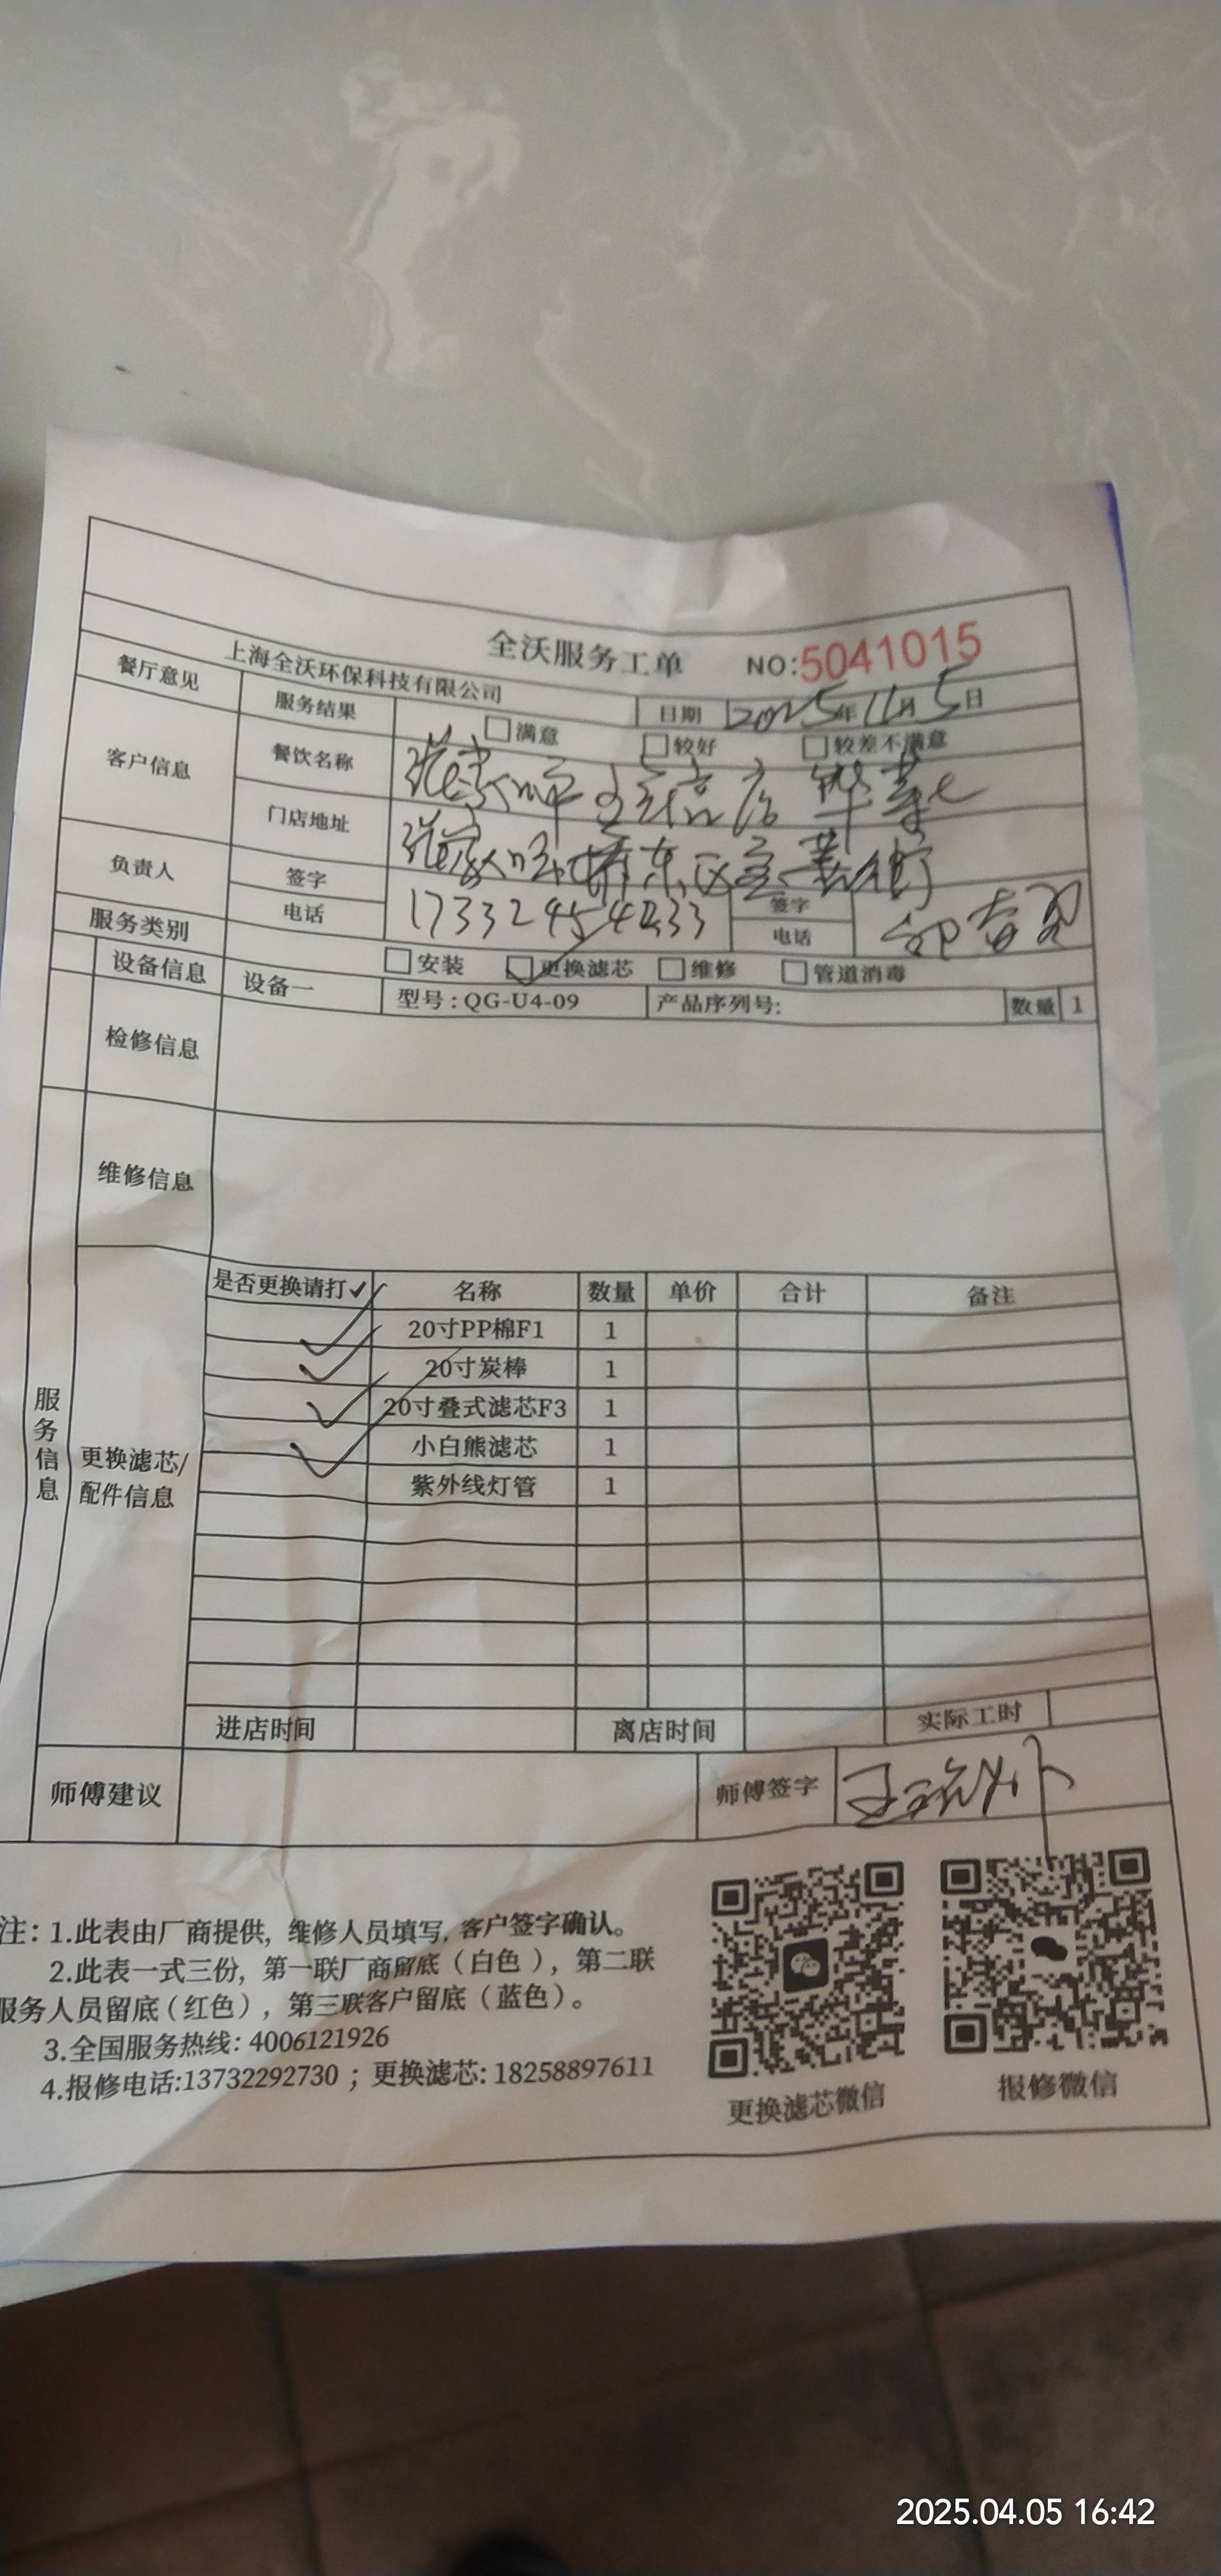 全沃服务工单 NO:5041015
上海全沃环保科技有限公司 日期 2025年11月5日
餐厅意见 服务结果 满意 较好 较差不满意
客户信息 餐饮名称 张家口市 店
门店地址 张家口市桥东区 街
负责人 签字 签字
电话 17332454233 电话
服务类别 安装 更换滤芯 维修 管道消毒
设备信息 设备一 型号:QG-U4-09 产品序列号: 数量 1
检修信息
维修信息
服务信息
更换滤芯/
配件信息
是否更换请打✓ 名称 数量 单价 合计 备注
✓ 20寸PP棉F1 1
✓ 20寸炭棒 1
✓ 20寸叠式滤芯F3 1
✓ 小白熊滤芯 1
紫外线灯管 1
进店时间 离店时间 实际工时
师傅建议 师傅签字
注: 1.此表由厂商提供, 维修人员填写, 客户签字确认。
2.此表一式三份, 第一联厂商留底(白色), 第二联
服务人员留底(红色), 第三联客户留底(蓝色)。
3.全国服务热线: 4006121926
4.报修电话:13732292730 ; 更换滤芯: 18258897611
更换滤芯微信 报修微信
2025.04.05 16:42